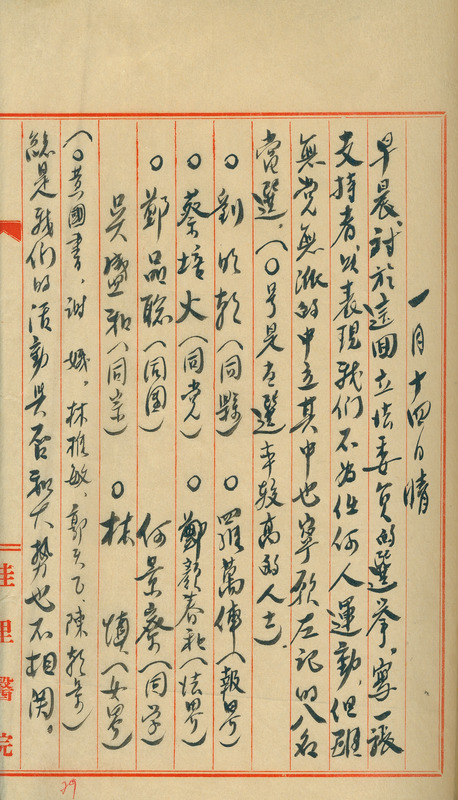 一月十四日晴
早晨，對於這回立法委員的選舉，寫一張
支持者，以表現我們不為任何人運動，但
無党無派的中立其中也寧願左記的八名
當選，（○号是当選率較高的人士）
○劉明朝（同縣）　○羅萬俥（報界）
○蔡培火（同党）　○鄭顏春和（法界）
○鄭品聰（同國）　何景寮（同学）
吳盛和（同業）　○林慎（女界）
（○黃國書，謝娥，林
總是我們的活動與否和大勢也不相関。
桂里醫院
29